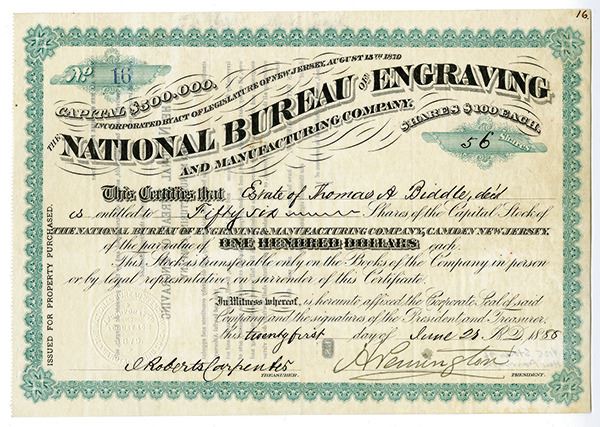 16.
No 16
CAPITAL $500.000.
INCORPORATED BY ACT OF LEGISLATURE OF NEW JERSEY, AUGUST 15TH 1879
THE NATIONAL BUREAU OF ENGRAVING
AND MANUFACTURING COMPANY.
SHARES $100 EACH.
56 Shares
This Certifies that Estate of Thomas A Biddle, dec'd
is entitled to Fifty six Shares of the Capital Stock of
THE NATIONAL BUREAU OF ENGRAVING & MANUFACTURING COMPANY, CAMDEN NEW JERSEY,
of the par value of ONE HUNDRED DOLLARS each.
This Stock is transferable only on the Books of the Company in person
or by legal representative on surrender of this Certificate.
In Witness whereof, is hereunto affixed the Corporate Seal of said
Company and the signatures of the President and Treasurer,
this twenty first day of June
J Roberts Carpenter
TREASURER.
A Pennington
PRESIDENT.
ISSUED FOR PROPERTY PURCHASED.